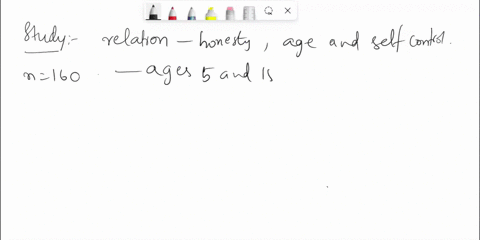 Study:- relation - honesty, age and self control.
n=160 - ages 5 and 15